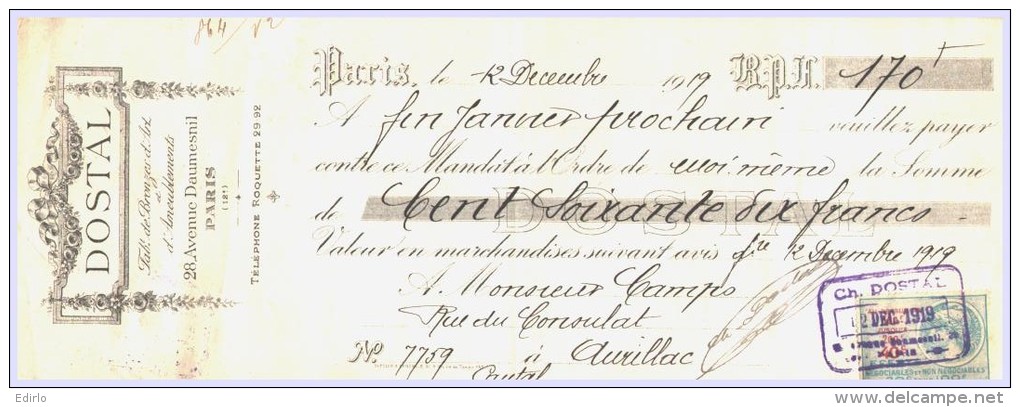 864/12
DOSTAL
Fab. de Bronzes d'Art
&
d'Ameublements
28, Avenue Daumesnil
PARIS
(12e)
TÉLÉPHONE ROQUETTE 29 92
Paris, le 12 Decembre 1919 B.P.F. 170
A fin Janvier prochain veuillez payer
contre ce Mandat à l'Ordre de moi même la Somme
de Cent Soixante dix francs
DOSTAL
Valeur en marchandises suivant avis fre 12 Decembre 1919
A Monsieur Camps
Rue du Consulat
No 7759 à Aurillac
Cantal
Ch. DOSTAL
12 DEC. 1919
NÉGOCIABLES ET NON NÉGOCIABLES
Edirlo
delcampe.net